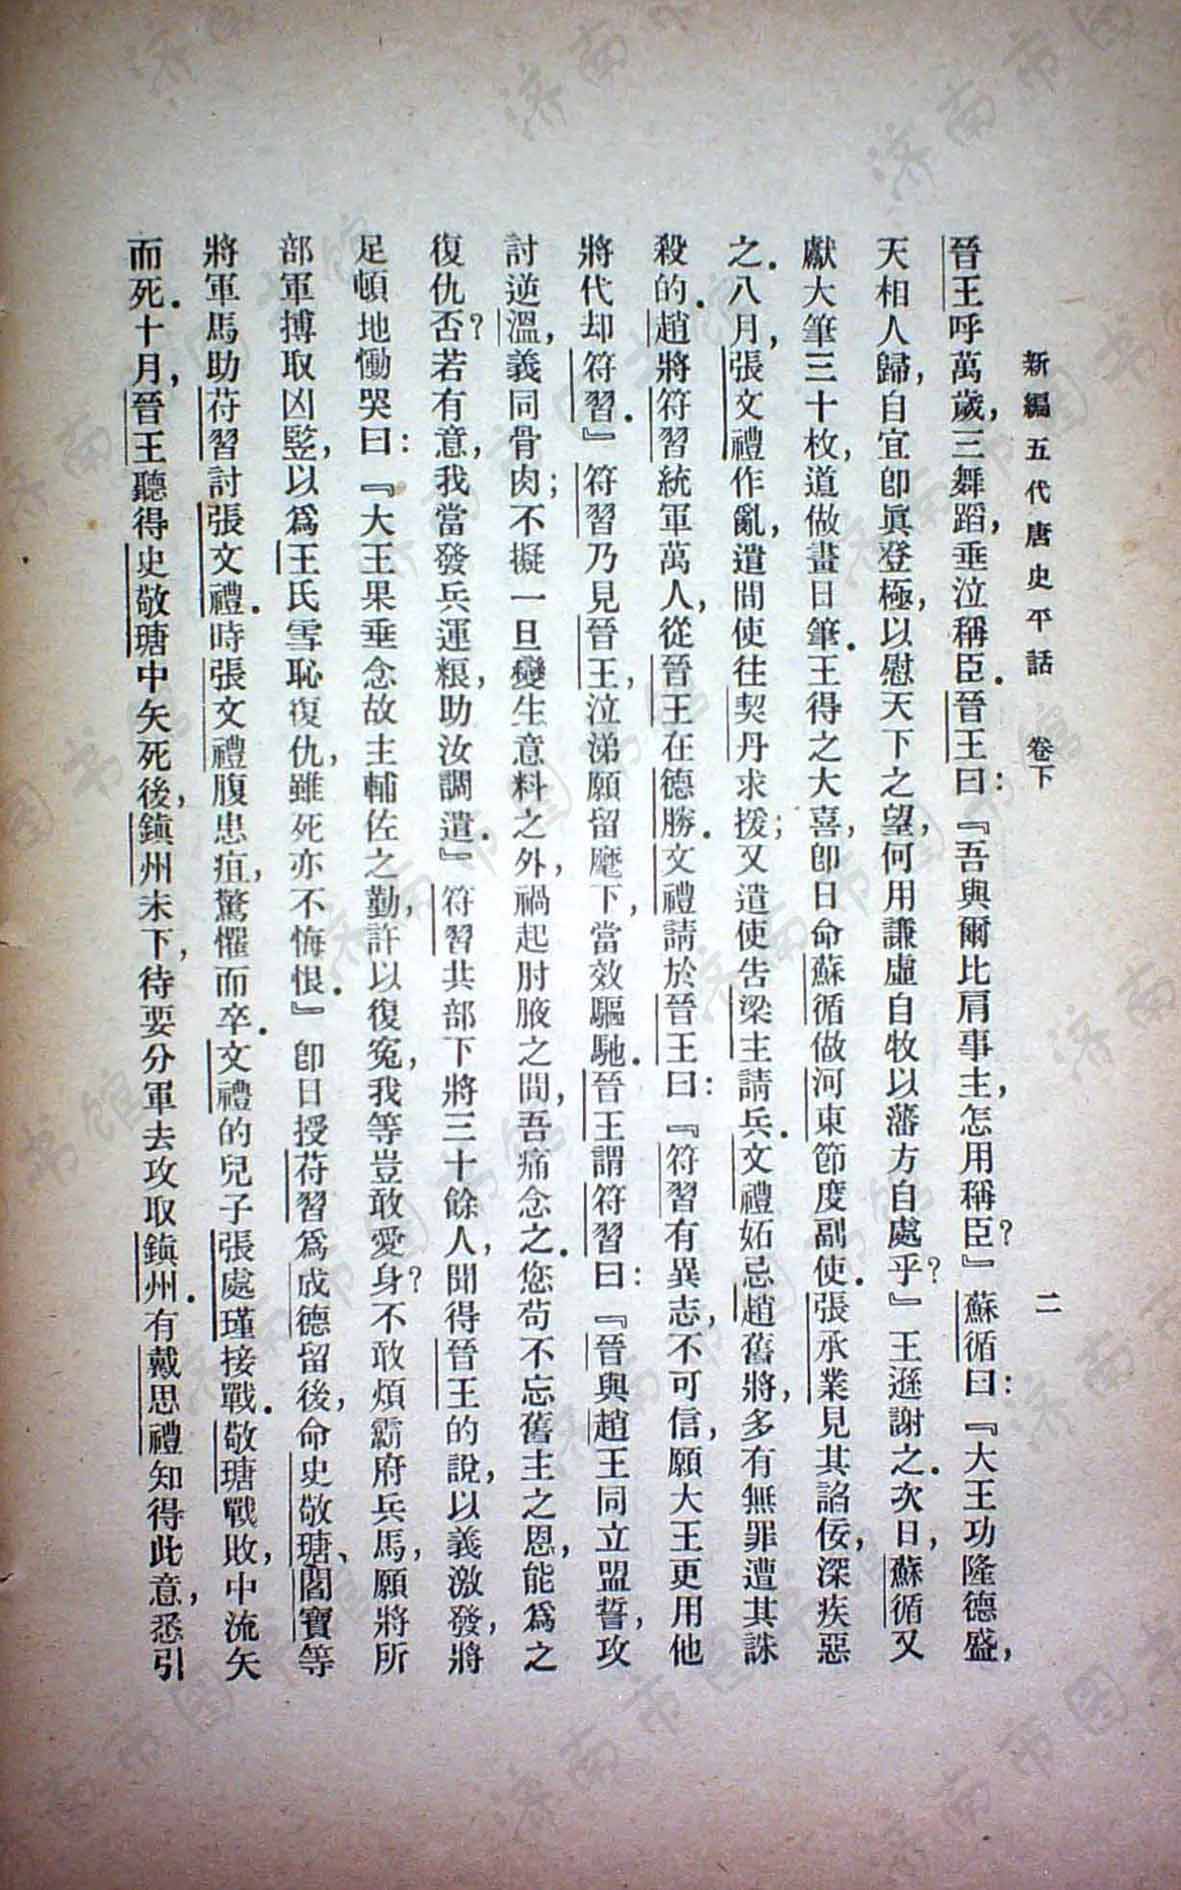 新編五代唐史平話　卷下　二
晉王呼萬歲，三舞蹈，垂泣稱臣．晉王曰：『吾與爾比肩事主，怎用稱臣？』蘇循曰：『大王功隆德盛，
天相人歸，自宜卽眞登極，以慰天下之望，何用謙虛自牧以藩方自處乎？』王遜謝之．次日，蘇循又
獻大筆三十枚，道做畫日筆．王得之大喜，卽日命蘇循做河東節度副使．張承業見其諂佞，深疾惡
之．八月，張文禮作亂，遣間使往契丹求援；又遣使吿梁主請兵．文禮妬忌趙舊將，多有無罪遭其誅
殺的．趙將符習統軍萬人，從晉王在德勝．文禮請於晉王曰：『符習有異志，不可信，願大王更用他
將代却符習．』符習乃見晉王，泣涕願留麾下，當效驅馳．晉王謂符習曰：『晉與趙王同立盟誓，攻
討逆溫，義同骨肉；不擬一旦變生意料之外，禍起肘腋之間，吾痛念之．您苟不忘舊主之恩，能爲之
復仇否？若有意，我當發兵運粮，助汝調遣．』符習共部下將三十餘人，聞得晉王的說，以義激發，將
足頓地慟哭曰：『大王果垂念故主輔佐之勤，許以復寃，我等豈敢愛身？不敢煩霸府兵馬，願將所
部軍搏取凶竪，以爲王氏雪恥復仇，雖死亦不悔恨．』卽日授苻習爲成德留後，命史敬瑭、閻寶等
將軍馬助苻習討張文禮．時張文禮腹患疽，驚懼而卒．文禮的兒子張處瑾接戰．敬瑭戰敗，中流矢
而死．十月，晉王聽得史敬瑭中矢死後，鎭州未下，待要分軍去攻取鎭州．有戴思禮知得此意，悉引